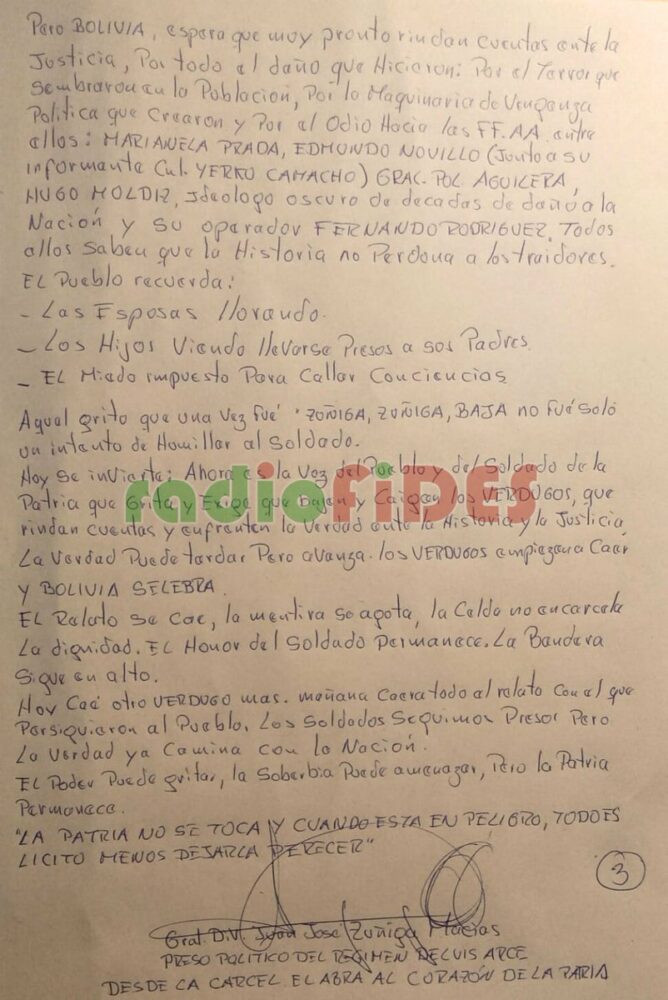 Pero BOLIVIA, espera que muy pronto rindan cuentas ante la
Justicia, Por todo el daño que Hicieron: Por el Terror que
sembraron en la Poblacion, Por la Maquinaria de Venganza
Politica que Crearon y Por el Odio Hacia las FF.AA. entre
ellos: MARIANELA PRADA, EDMUNDO NOVILLO (Junto a su
informante Cnl. YERKO CAMACHO) GRAL. POL. AGUILERA,
HUGO MOLDIZ, Ideologo oscuro de decadas de daño a la
Nación y su operador FERNANDO RODRIGUEZ. Todos
ellos saben que la Historia no Perdona a los traidores.
EL Pueblo recuerda:
- Las Esposas llorando.
- Los Hijos Viendo llevarse Presos a sus Padres
- EL Miedo impuesto Para Callar Conciencias
Aquel grito que una Vez fué "ZUÑIGA, ZUÑIGA, BAJA no fué solo
un intento de Humillar al Soldado.
Hoy se invierte: Ahora es la Voz del Pueblo y del Soldado de la
Patria que Grita y Exige que Bajen y Caigan los VERDUGOS, que
rindan cuentas y enfrenten la Verdad ante la Historia y la Justicia,
La Verdad Puede tardar Pero avanza. los VERDUGOS empiezan a Caer
Y BOLIVIA SELEBRA.
EL Relato se cae, la mentira se agota, la Celda no encarcela
La dignidad. EL Honor del Soldado Permanece. La Bandera
Sigue en alto.
Hoy Caé otro VERDUGO mas. mañana Caera todo el relato con el que
Persiguieron al Pueblo. Los Soldados Seguimos Presos Pero
La Verdad ya Camina con la Nación.
EL Poder Puede gritar, la Soberbia Puede amenazar, Pero la Patria
Permanece.
"LA PATRIA NO SE TOCA Y CUANDO ESTA EN PELIGRO, TODO ES
LICITO MENOS DEJARLA PERECER"
3
Gral. D.V. Juan José Zuñiga Macias
PRESO POLITICO DEL REGIMEN DE LUIS ARCE
DESDE LA CARCEL EL ABRA AL CORAZÓN DE LA PATRIA
radio FIDES